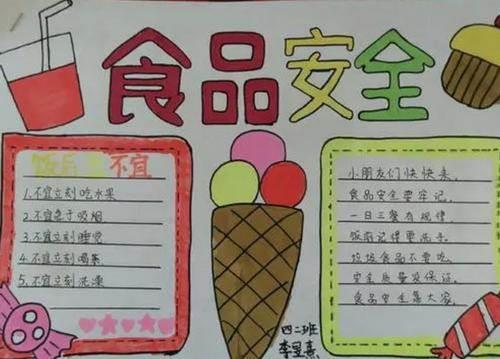 食品安全
饭后五不宜
1.不宜立刻吃水果
2.不宜急于吸烟
3.不宜立刻睡觉
4.不宜立刻喝茶
5.不宜立刻洗澡
小朋友们快快来，
食品安全要牢记。
一日三餐有规律，
饭前记得要洗手。
垃圾食品不要吃，
安全质量没保证。
食品安全靠大家。
四二班
李